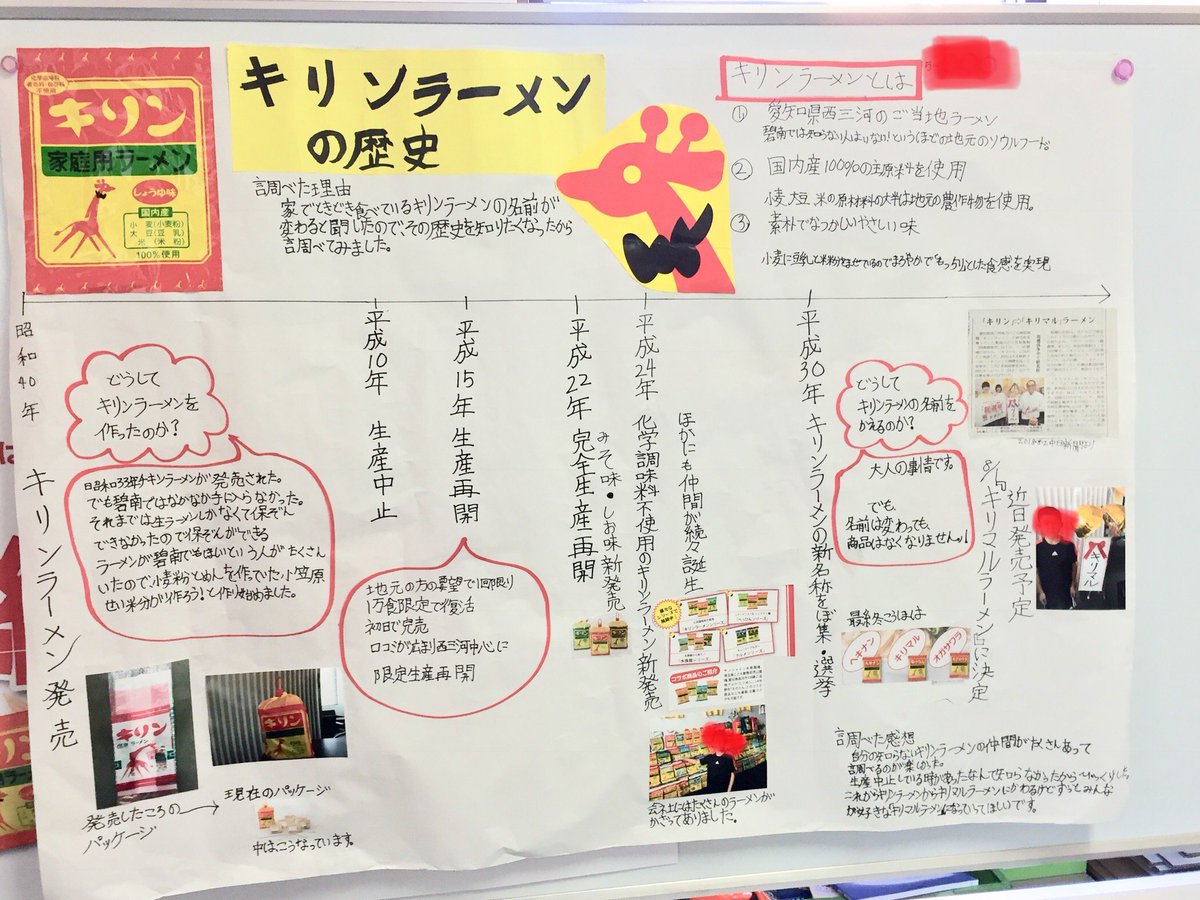 化学調味料
着色料・保存料
不使用
キリン
家庭用ラーメン
しょうゆ味
国内産
小麦(小麦粉)
大豆(豆乳)
米(米粉)
100%使用
キリンラーメン
の歴史
調べた理由
家でときどき食べているキリンラーメンの名前が
変わると聞いたのでその歴史を知りたくなったから
調べてみました。
キリンラーメンとは
① 愛知県西三河のご当地ラーメン
碧南では知らない人はいない!というほどの地元のソウルフード。
② 国内産100%の主原料を使用
小麦、大豆、米の原材料の大半は地元の農作物を使用。
③ 素朴でなつかしいやさしい味
小麦に豆乳と米粉をまぜているのでまろやかで"もっちり"とした食感を実現
昭和40年 キリンラーメン発売
どうして
キリンラーメンを
作ったのか?
昭和33年チキンラーメンが発売された。
でも碧南ではなかなか手に入らなかった。
それまでは生ラーメンしかなくて保ぞん
できなかったので保ぞんができる
ラーメンが碧南でもほしいという人がたくさん
いたので小麦粉とめんを作ていた小笠原
せい粉が「作ろう!」と作り始めました。
キリン
発売したころの
パッケージ
キリン
現在のパッケージ
中は、こうなっています。
平成10年 生産中止
平成15年 生産再開
地元の方の要望で1回限り
1万食限定で復活
初日で完売
口コミが広まり西三河中心に
限定生産再開
平成22年 完全生産再開
みそ味・しお味新発売
平成24年 化学調味料不使用のキリンラーメン新発売
ほかにも仲間が続々誕生
コラボ商品のご紹介
会社にはたくさんのラーメンが
かざってありました。
平成30年 キリンラーメンの新名称をぼ集・選挙
どうして
キリンラーメンの名前を
かえるのか?
大人の事情です。
でも、
名前は変わっても、
商品はなくなりません!
最終こうほは
ヘキナン
キリマル
オガサワラ
「キリン」→「キリマル」ラーメン
キリマルラーメンに決定
近日発売予定
キリマル
調べた感想
自分の知らないキリンラーメンの仲間がたくさんあって
調べるのが楽しかった。
生産中止している時があったなんて知らなかったからびっくりした。
これからキリンラーメンからキリマルラーメンにかわるけどずっとみんな
が好きな「キリマルラーメン」になっていってほしいです。